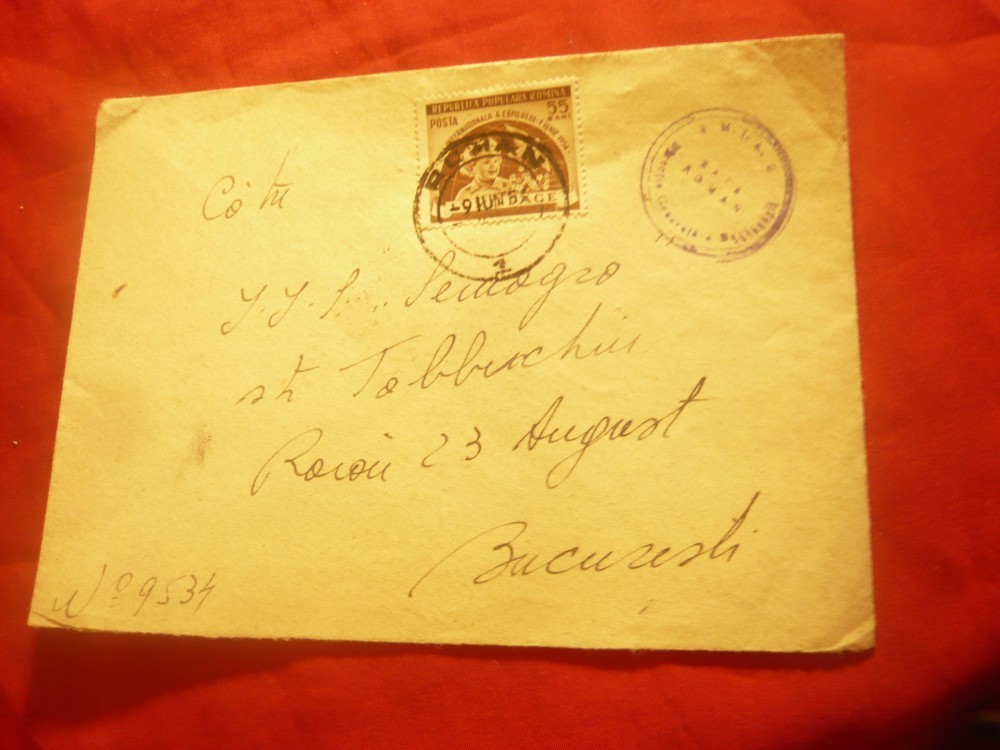 REPUBLICA POPULARA ROMINA
POSTA 55
BANI
INTERNATIONALA A COPILULUI · 1 IUNIE 1954
ROMAN
-9 IUN 54
1
ROMAN
Către
Semagro
str Tolbuchin
Raion 23 August
Bucuresti
No 9534